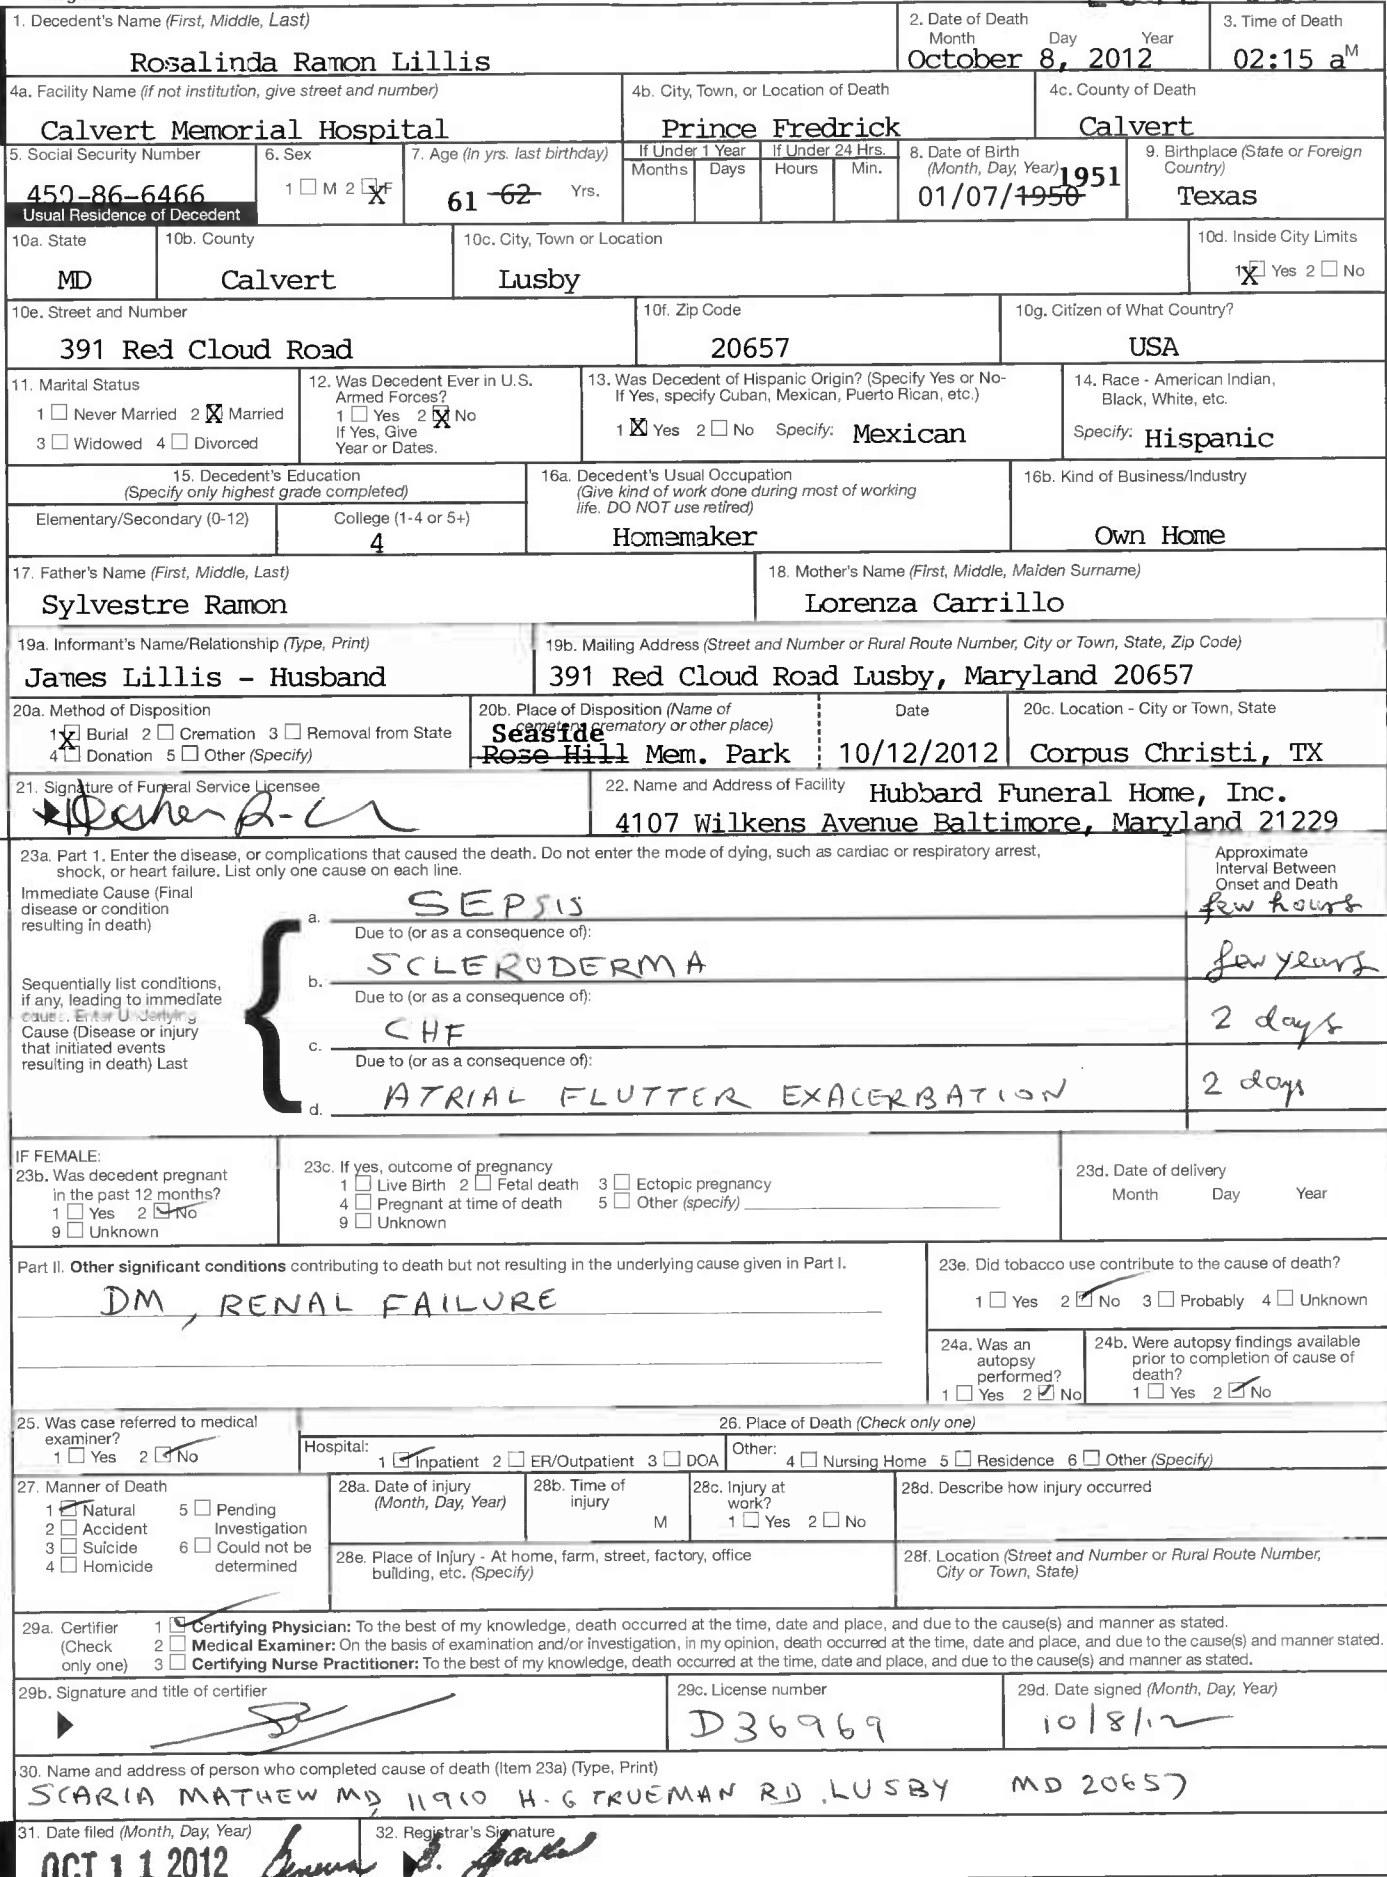 1. Decedent's Name (First, Middle, Last)
Rosalinda Ramon Lillis
2. Date of Death
Month Day Year
October 8, 2012
3. Time of Death
02:15 a M
4a. Facility Name (if not institution, give street and number)
Calvert Memorial Hospital
4b. City, Town, or Location of Death
Prince Fredrick
4c. County of Death
Calvert
5. Social Security Number
450-86-6466
6. Sex
1 ☐ M 2 ☒ F
7. Age (In yrs. last birthday)
61 62 Yrs.
If Under 1 Year
Months Days
If Under 24 Hrs.
Hours Min.
8. Date of Birth
(Month, Day, Year)
1951
01/07/1950
9. Birthplace (State or Foreign
Country)
Texas
Usual Residence of Decedent
10a. State
MD
10b. County
Calvert
10c. City, Town or Location
Lusby
10d. Inside City Limits
1 ☒ Yes 2 ☐ No
10e. Street and Number
391 Red Cloud Road
10f. Zip Code
20657
10g. Citizen of What Country?
USA
11. Marital Status
1 ☐ Never Married 2 ☒ Married
3 ☐ Widowed 4 ☐ Divorced
12. Was Decedent Ever in U.S.
Armed Forces?
1 ☐ Yes 2 ☒ No
If Yes, Give
Year or Dates.
13. Was Decedent of Hispanic Origin? (Specify Yes or No-
If Yes, specify Cuban, Mexican, Puerto Rican, etc.)
1 ☒ Yes 2 ☐ No Specify: Mexican
14. Race - American Indian,
Black, White, etc.
Specify: Hispanic
15. Decedent's Education
(Specify only highest grade completed)
Elementary/Secondary (0-12)
College (1-4 or 5+)
4
16a. Decedent's Usual Occupation
(Give kind of work done during most of working
life. DO NOT use retired)
Homemaker
16b. Kind of Business/Industry
Own Home
17. Father's Name (First, Middle, Last)
Sylvestre Ramon
18. Mother's Name (First, Middle, Maiden Surname)
Lorenza Carrillo
19a. Informant's Name/Relationship (Type, Print)
James Lillis - Husband
19b. Mailing Address (Street and Number or Rural Route Number, City or Town, State, Zip Code)
391 Red Cloud Road Lusby, Maryland 20657
20a. Method of Disposition
1 ☒ Burial 2 ☐ Cremation 3 ☐ Removal from State
4 ☐ Donation 5 ☐ Other (Specify)
20b. Place of Disposition (Name of
cemetery, crematory or other place)
Seaside
Rose Hill Mem. Park
Date
10/12/2012
20c. Location - City or Town, State
Corpus Christi, TX
21. Signature of Funeral Service Licensee
22. Name and Address of Facility Hubbard Funeral Home, Inc.
4107 Wilkens Avenue Baltimore, Maryland 21229
23a. Part 1. Enter the disease, or complications that caused the death. Do not enter the mode of dying, such as cardiac or respiratory arrest,
shock, or heart failure. List only one cause on each line.
Approximate
Interval Between
Onset and Death
Immediate Cause (Final
disease or condition
resulting in death)
a. SEPSIS few hours
Due to (or as a consequence of):
Sequentially list conditions,
if any, leading to immediate
cause. Enter Underlying
Cause (Disease or injury
that initiated events
resulting in death) Last
b. SCLERODERMA few years
Due to (or as a consequence of):
c. CHF 2 days
Due to (or as a consequence of):
d. ATRIAL FLUTTER EXACERBATION 2 days
IF FEMALE:
23b. Was decedent pregnant
in the past 12 months?
1 ☐ Yes 2 ☑ No
9 ☐ Unknown
23c. If yes, outcome of pregnancy
1 ☐ Live Birth 2 ☐ Fetal death 3 ☐ Ectopic pregnancy
4 ☐ Pregnant at time of death 5 ☐ Other (specify)
9 ☐ Unknown
23d. Date of delivery
Month Day Year
Part II. Other significant conditions contributing to death but not resulting in the underlying cause given in Part I.
DM, RENAL FAILURE
23e. Did tobacco use contribute to the cause of death?
1 ☐ Yes 2 ☑ No 3 ☐ Probably 4 ☐ Unknown
24a. Was an
autopsy
performed?
1 ☐ Yes 2 ☑ No
24b. Were autopsy findings available
prior to completion of cause of
death?
1 ☐ Yes 2 ☑ No
25. Was case referred to medical
examiner?
1 ☐ Yes 2 ☑ No
26. Place of Death (Check only one)
Hospital:
1 ☑ Inpatient 2 ☐ ER/Outpatient 3 ☐ DOA
Other:
4 ☐ Nursing Home 5 ☐ Residence 6 ☐ Other (Specify)
27. Manner of Death
1 ☑ Natural 5 ☐ Pending
2 ☐ Accident Investigation
3 ☐ Suicide 6 ☐ Could not be
4 ☐ Homicide determined
28a. Date of injury
(Month, Day, Year)
28b. Time of
injury
M
28c. Injury at
work?
1 ☐ Yes 2 ☐ No
28d. Describe how injury occurred
28e. Place of Injury - At home, farm, street, factory, office
building, etc. (Specify)
28f. Location (Street and Number or Rural Route Number,
City or Town, State)
29a. Certifier
(Check
only one)
1 ☑ Certifying Physician: To the best of my knowledge, death occurred at the time, date and place, and due to the cause(s) and manner as stated.
2 ☐ Medical Examiner: On the basis of examination and/or investigation, in my opinion, death occurred at the time, date and place, and due to the cause(s) and manner stated.
3 ☐ Certifying Nurse Practitioner: To the best of my knowledge, death occurred at the time, date and place, and due to the cause(s) and manner as stated.
29b. Signature and title of certifier
29c. License number
D36969
29d. Date signed (Month, Day, Year)
10/8/12
30. Name and address of person who completed cause of death (Item 23a) (Type, Print)
SCARIA MATHEW MD, 11910 H.G TRUEMAN RD, LUSBY MD 20657
31. Date filed (Month, Day, Year)
OCT 11 2012
32. Registrar's Signature